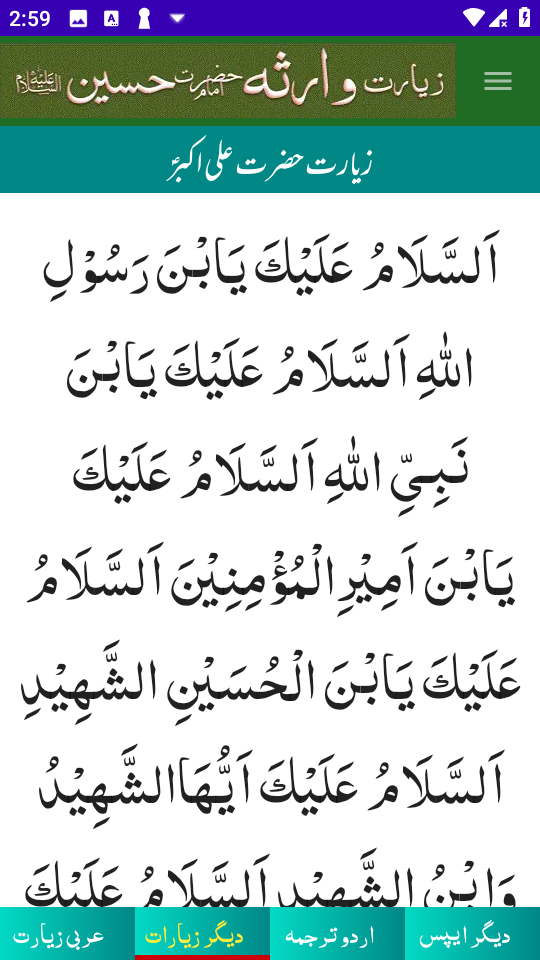 2:59
زیارت وارثہ حضرت امام حسین علیہ السلام
زیارت حضرت علی اکبرؑ
اَلسَّلَامُ عَلَيْكَ يَابْنَ رَسُوْلِ
اللهِ اَلسَّلَامُ عَلَيْكَ يَابْنَ
نَبِيِّ اللهِ اَلسَّلَامُ عَلَيْكَ
يَابْنَ اَمِيْرِ الْمُؤْمِنِيْنَ اَلسَّلَامُ
عَلَيْكَ يَابْنَ الْحُسَيْنِ الشَّهِيْدِ
اَلسَّلَامُ عَلَيْكَ اَيُّهَا الشَّهِيْدُ
وَابْنُ الشَّهِيْدِ اَلسَّلَامُ عَلَيْكَ
دیگر ایپس
اردو ترجمہ
دیگر زیارات
عربی زیارت